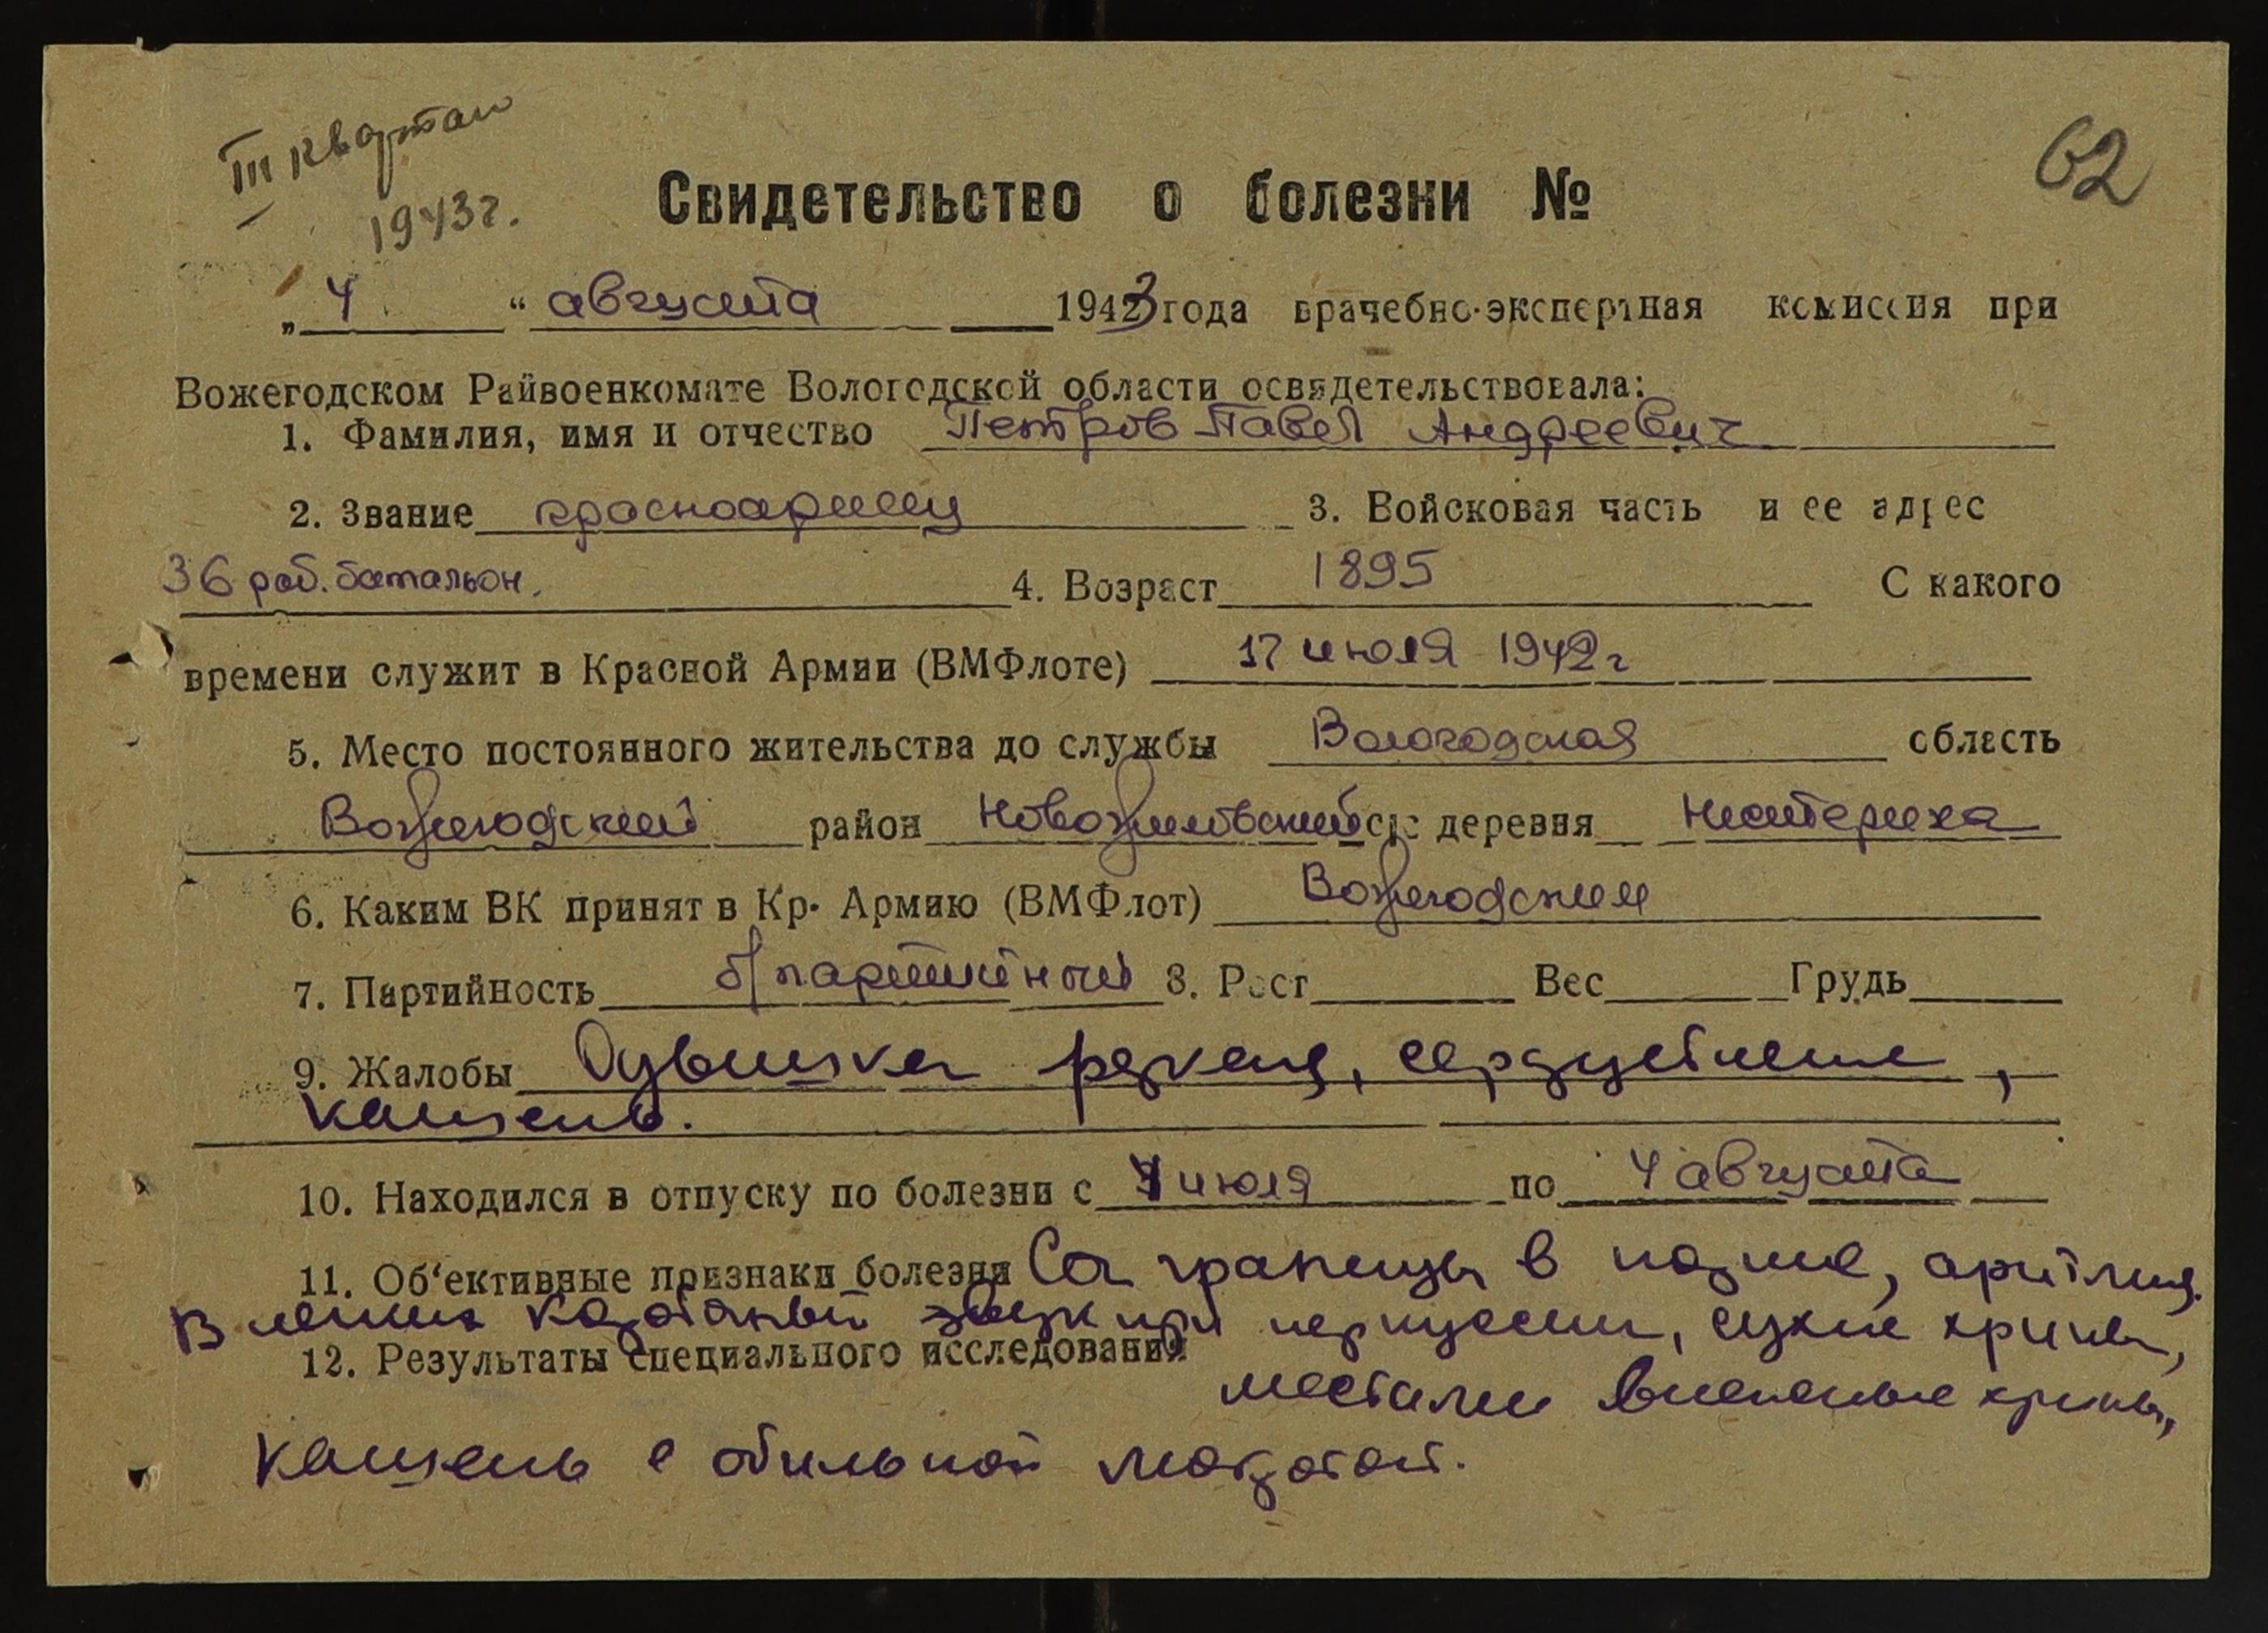 III квартал
1943г.
62
Свидетельство о болезни №
„ 4 “ августа 1943 года врачебно-экспертная комиссия при
Вожегодском Райвоенкомате Вологодской области освидетельствовала:
1. Фамилия, имя и отчество Петров Павел Андреевич
2. Звание красноармеец 3. Войсковая часть и ее адрес
36 раб. батальон. 4. Возраст 1895 С какого
времени служит в Красной Армии (ВМФлоте) 17 июля 1942г
5. Место постоянного жительства до службы Вологодская область
Вожегодский район Новожиловский с/с деревня Нестериха
6. Каким ВК принят в Кр. Армию (ВМФлот) Вожегодским
7. Партийность б/партийный 8. Рост Вес Грудь
9. Жалобы Одышка резкая, сердцебиение,
кашель.
10. Находился в отпуску по болезни с июля по 4 августа
11. Об'ективные признаки болезни границы в норме, аритмия.
В легких коробочный звук при перкуссии, сухие хрипы,
12. Результаты специального исследования
местами влажные хрипы,
кашель с обильной мокротой.